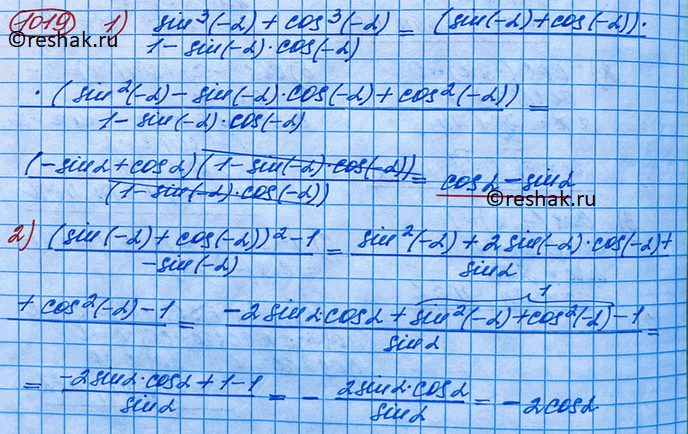 1019 1) sin³(-α) + cos³(-α) / 1 - sin(-α)·cos(-α) = (sin(-α)+cos(-α))·
©reshak.ru
·(sin²(-α) - sin(-α)·cos(-α) + cos²(-α)) / 1 - sin(-α)·cos(-α) =
(-sinα + cosα)(1 - sin(-α)·cos(-α)) / (1 - sin(-α)·cos(-α)) = cosα - sinα
©reshak.ru
2) (sin(-α) + cos(-α))² - 1 / -sin(-α) = sin²(-α) + 2sin(-α)·cos(-α) + / sinα
+ cos²(-α) - 1 = -2sinα·cosα + sin²(-α) + cos²(-α) - 1 / sinα = 1
= -2sinα·cosα + 1 - 1 / sinα = - 2sinα·cosα / sinα = -2cosα